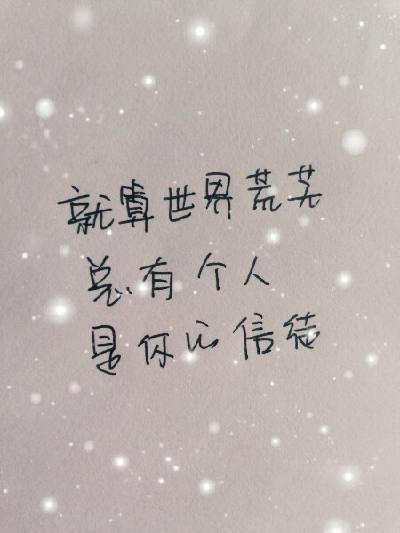 就算世界荒芜
总有个人
是你的信徒